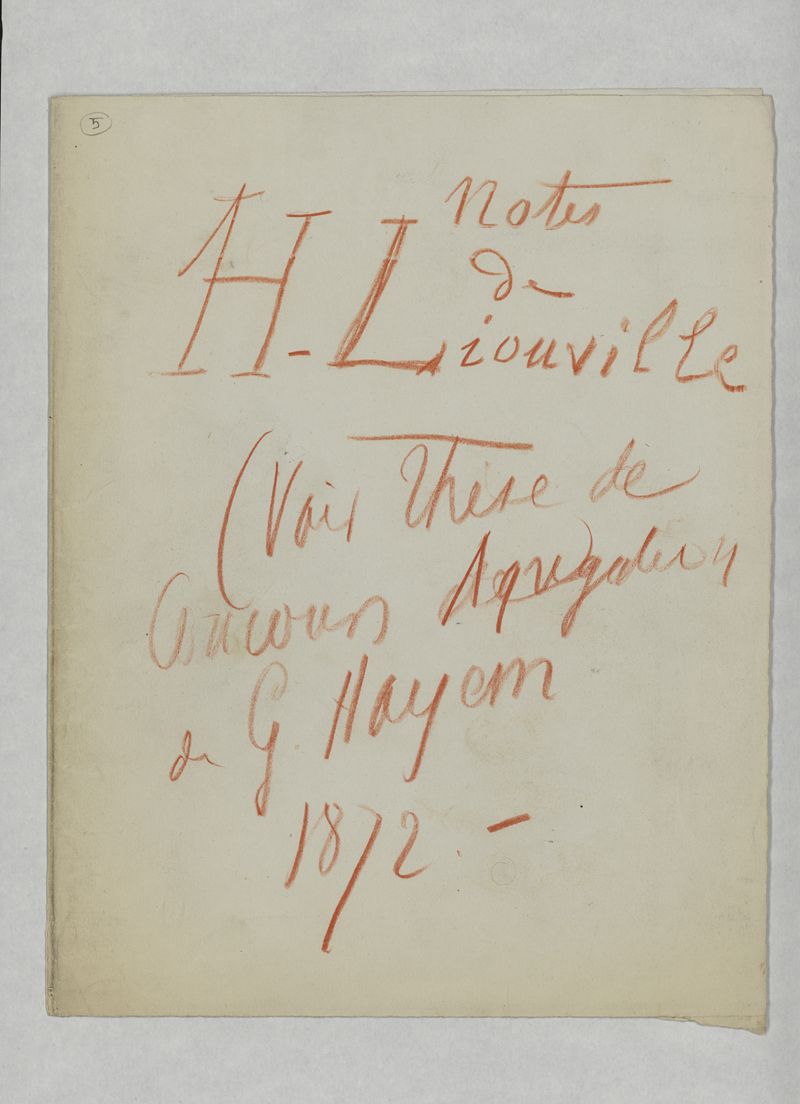 5
Notes
de
H. Liouville
(Voir Thèse de
Concours Agrégation)
de G. Hayem
1872. -